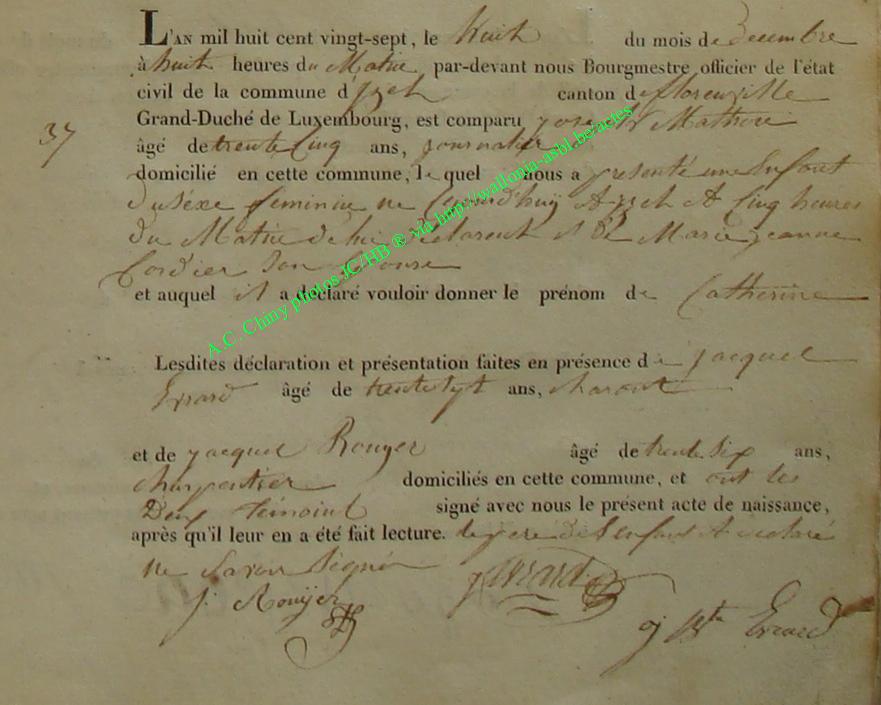 L'AN mil huit cent vingt-sept, le huit du mois de Decembre
à huit heures du Matin par-devant nous Bourgmestre officier de l'état
civil de la commune d'Izel canton de florenville
37
Grand-Duché de Luxembourg, est comparu joseph Mathieu
âgé de trente Cinq ans, journalier
domicilié en cette commune, lequel nous a presenté une Enfant
du sexe feminin ne Cejourd'huy A Izel A Cinq heures
du Matin de lui declarent et de Marie jeanne
Cordier Son Epouse
et auquel il a déclaré vouloir donner le prénom de Catherine
Lesdites déclaration et présentation faites en présence de jacque
Evrard âgé de trente sept ans,
et de jacque Rouyer âgé de trente Six ans,
charpentier domiciliés en cette commune, et ont les
Deux témoins signé avec nous le présent acte de naissance,
après qu'il leur en a été fait lecture. le pere de l'enfant A declaré
ne Savoir Signé
j. Rouyer j Evrard
j Bte Evrard
A.C. Chiny photos JC/HB ® via http://wallonia-asbl.be/actes